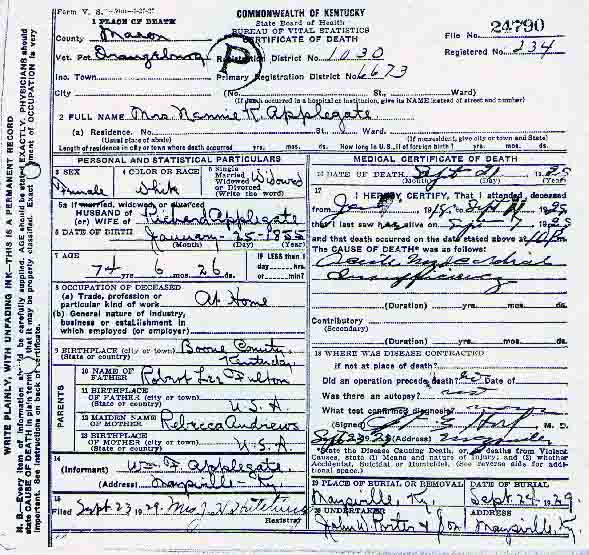 Form V. S.
COMMONWEALTH OF KENTUCKY
State Board of Health
BUREAU OF VITAL STATISTICS
CERTIFICATE OF DEATH
File No. 24790
Registered No. 234
1 PLACE OF DEATH
County Mason
Vot. Pct. Orangeburg
Registration District No. 1030
Inc. Town
Primary Registration District No. 6673
City (No. St., Ward)
(If death occurred in a hospital or institution, give its NAME instead of street and number)
2 FULL NAME Mrs Nannie K. Applegate
(a) Residence. No. St. Ward.
(Usual place of abode) (If nonresident, give city or town and State)
Length of residence in city or town where death occurred yrs. mos. ds. How long in U.S., if of foreign birth? yrs. mos. ds.
PERSONAL AND STATISTICAL PARTICULARS
3 SEX Female
4 COLOR OR RACE White
5 Single Married Widowed or Divorced (Write the word) Widowed
5a If married, widowed or divorced
HUSBAND of
(or) WIFE of Richard Applegate
6 DATE OF BIRTH January-25-1855
(Month) (Day) (Year)
7 AGE IF LESS than 1
74 6 26
day hrs.
or min?
8 OCCUPATION OF DECEASED
(a) Trade, profession or
particular kind of work At Home
(b) General nature of industry,
business or establishment in
which employed (or employer)
9 BIRTHPLACE (city or town) Boone County
(State or country) Kentucky
PARENTS
10 NAME OF
FATHER Robert Lee Fulton
11 BIRTHPLACE
OF FATHER (city or town)
(State or country) U.S.A
12 MAIDEN NAME
OF MOTHER Rebecca Andrews
13 BIRTHPLACE
OF MOTHER (city or town)
(State or country) U.S.A
14
(Informant) Wm F Applegate
(Address) Maysville-Ky
15
Filed Sept 23 1929 Mrs J. H.
Registrar
MEDICAL CERTIFICATE OF DEATH
16 DATE OF DEATH Sept 21
(Month) (Day) (Year)
17
I HEREBY CERTIFY, That I attended deceased
from to Sept
that I last saw h alive on
and that death occurred on the date stated above at
The CAUSE OF DEATH* was as follows:
Acute Myocardial
Insufficiency
(Duration) yrs. mos. ds.
Contributory
(Secondary)
(Duration) yrs. mos. ds.
18 WHERE WAS DISEASE CONTRACTED
if not at place of death?
Did an operation precede death? no Date of
Was there an autopsy? no
What test confirmed diagnosis?
(Signed) M. D.
Sept 23 29 (Address) Maysville
*State the Disease Causing Death, or, in deaths from Violent
Causes, state (1) Means and nature of injury; and (2) whether
Accidental, Suicidal or Homicidal. (See reverse side for addi-
tional space.)
19 PLACE OF BURIAL OR REMOVAL DATE OF BURIAL
Maysville, Ky. Sept. 24 1929.
20 UNDERTAKER ADDRESS
John W. Porter & Son Maysville. K
WRITE PLAINLY, WITH UNFADING INK—THIS IS A PERMANENT RECORD
N. B.—Every item of information should be carefully supplied. AGE should be stated EXACTLY. PHYSICIANS should
state CAUSE OF DEATH in plain terms, so that it may be properly classified. Exact statement of OCCUPATION is very
important. See instructions on back of certificate.